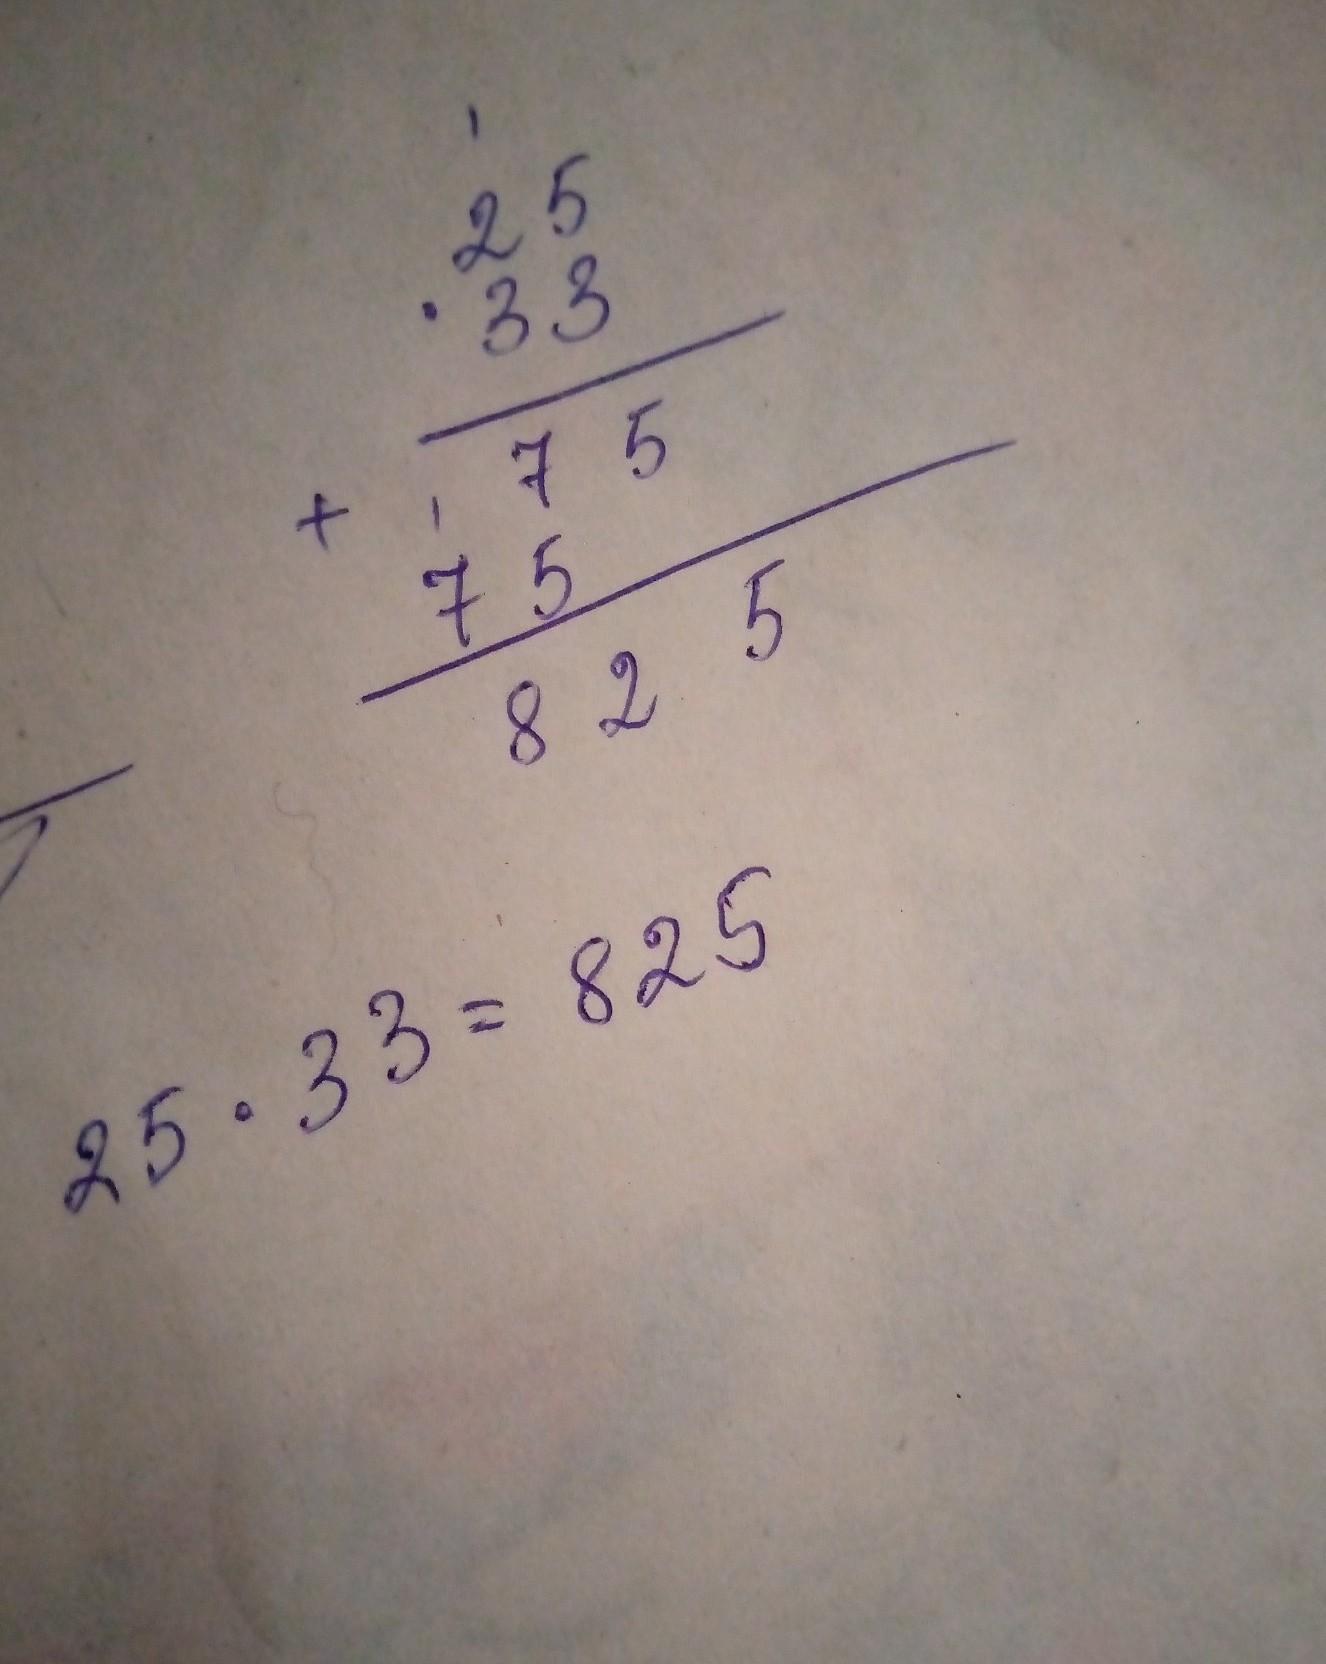 1
25
·33
75
+ 1
75
825
25·33=825